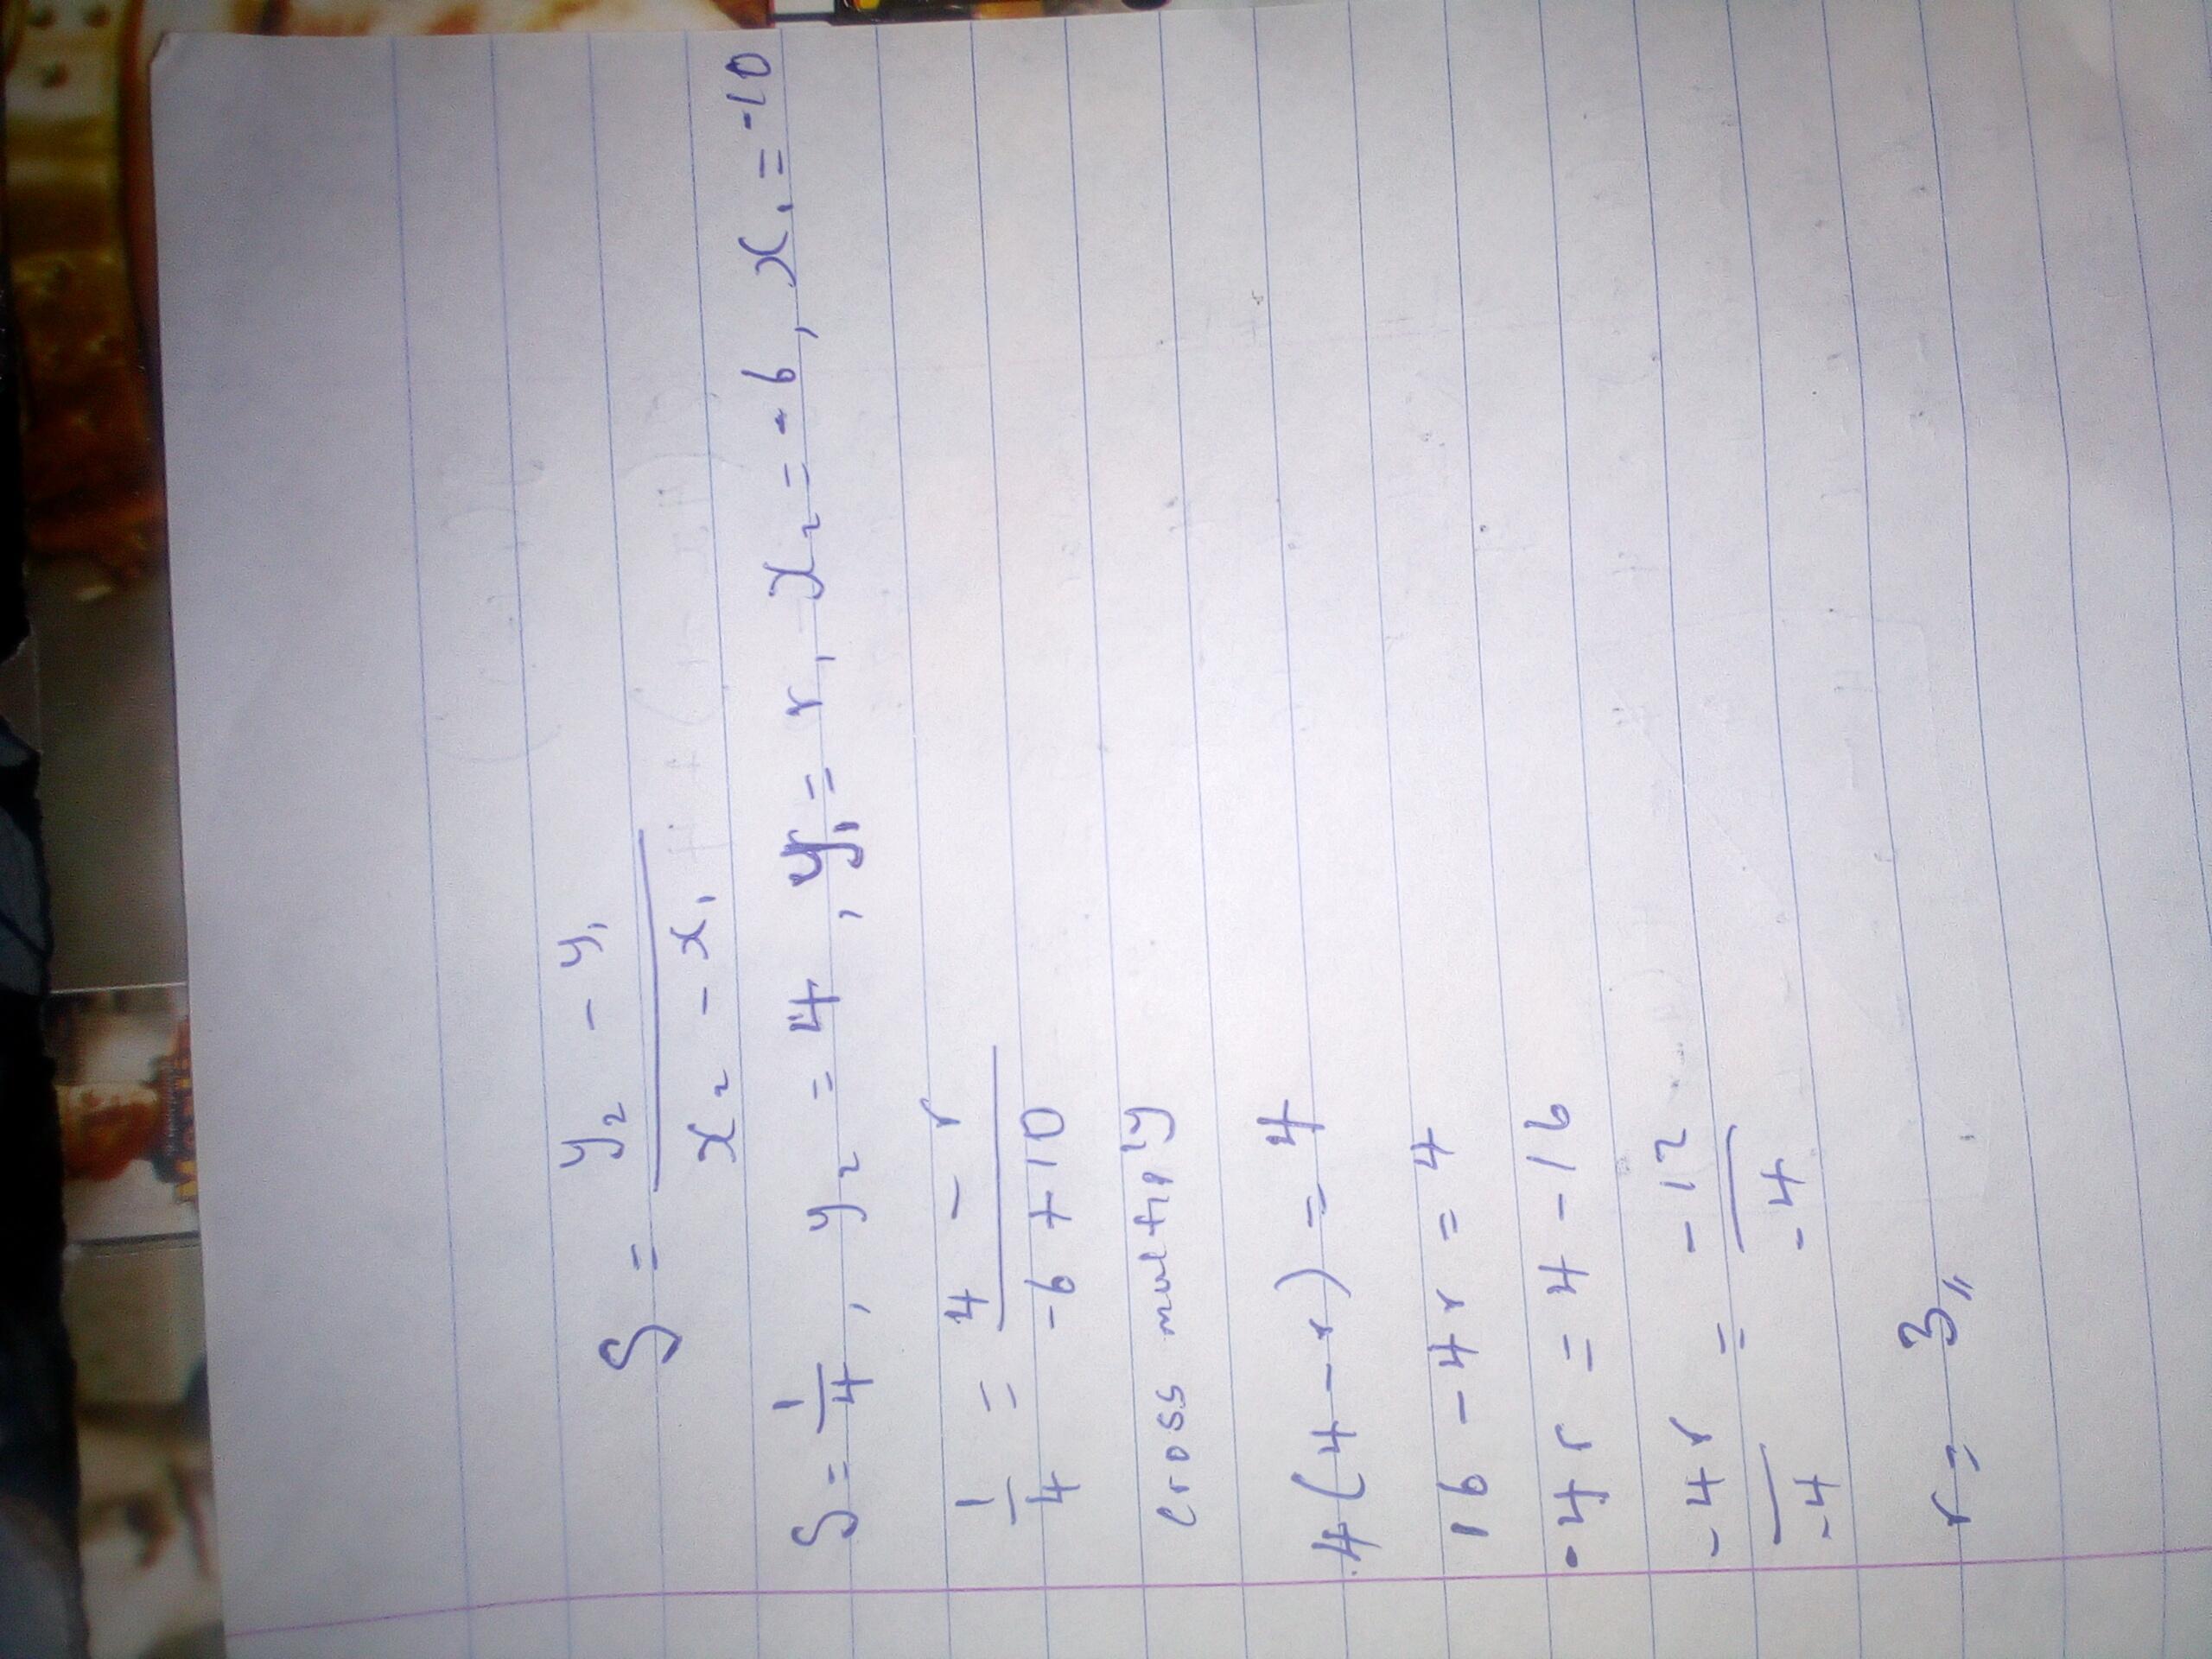 S = y₂ - y₁ / x₂ - x₁
S = 1/4, y₂ = 4, y₁ = r, x₂ = -6, x₁ = -10
1/4 = 4 - r / -6 + 10
cross multiply
4(4 - r) = 4
16 - 4r = 4
-4r = 4 - 16
-4r / -4 = -12 / -4
r = 3,,